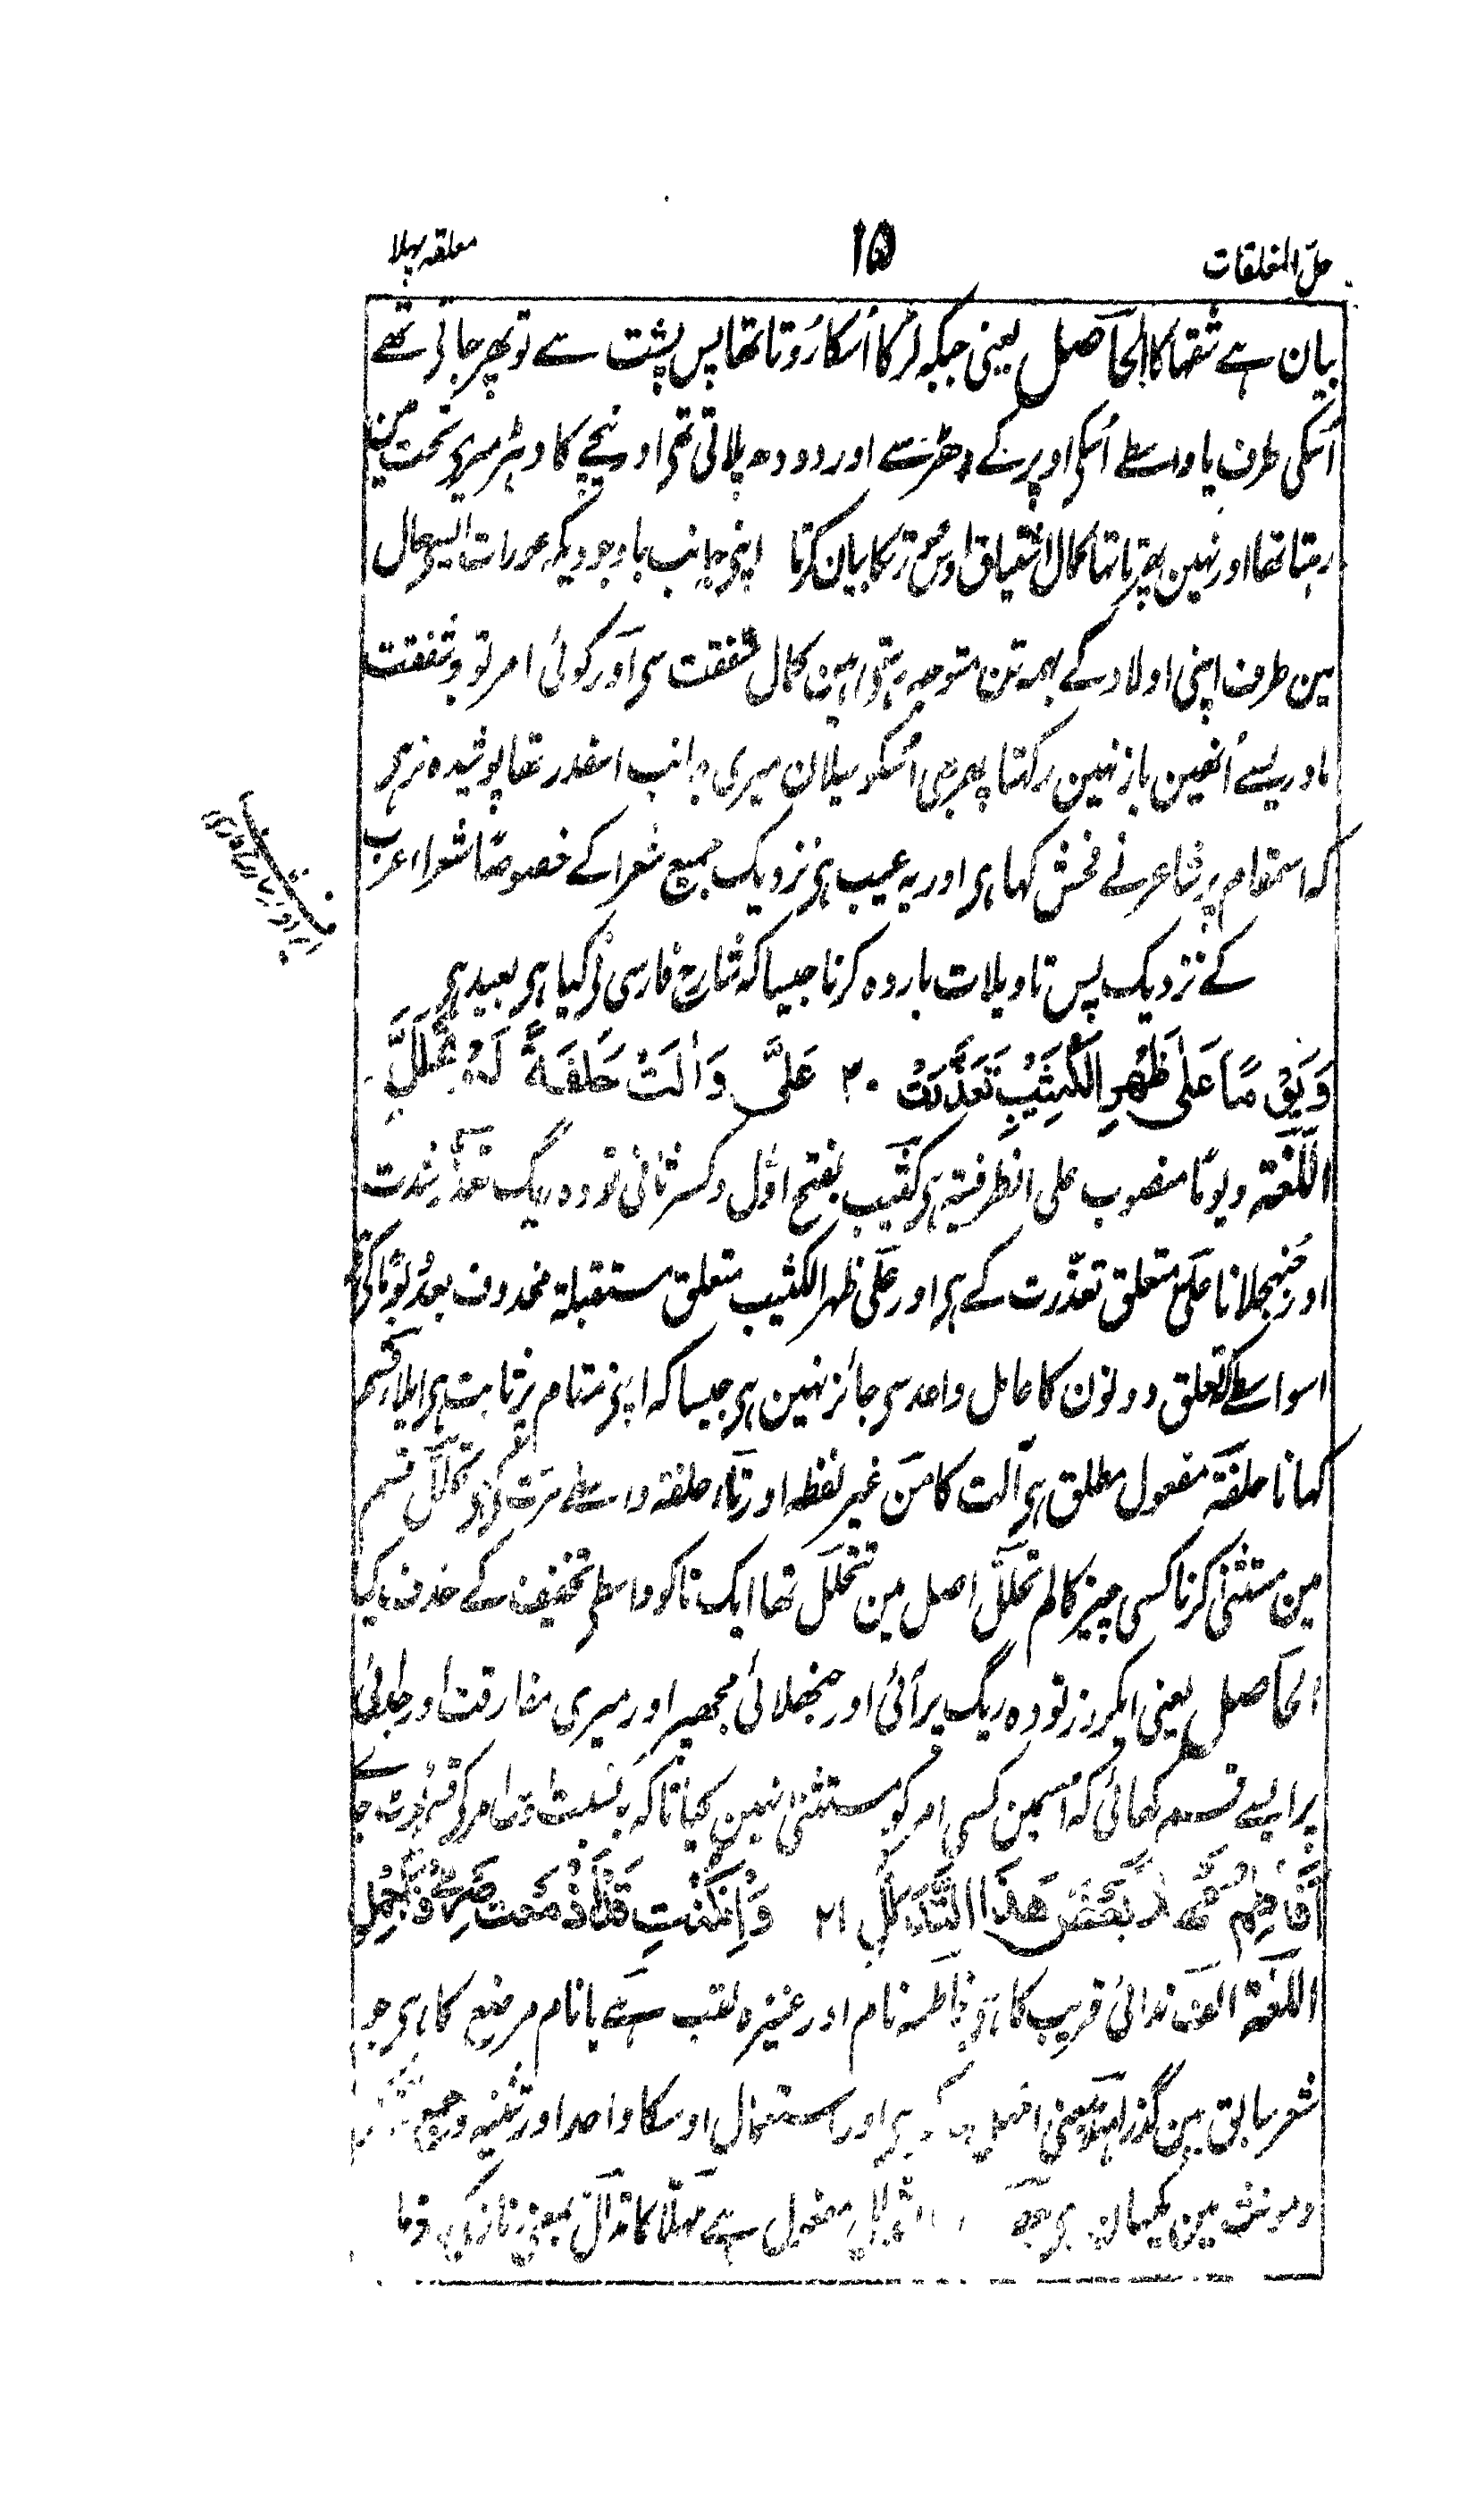 حل المغلقات
۱۵
معلقہ پہلا
بیان ہے شقہا کا الحاصل یعنی جبکہ لڑکا اُسکا رُوتا تھا پس پشت سے تو پھر جاتی تھے
اُسکی طرف یا واسطے اُسکی اوپر کے دھڑسے اور دودھ پلاتی تھی اور نیچے کا دہڑ میری تحت مین
رہتا تھا اور نہین پھرتا تہا کمال اشتیاق اوس عورت کا بیان کرتا اپنی جانب باوجودیکہ عورات ایسی حال
مین طرف اپنی اولاد کے ہمہ تن متوجہ رہتی ہین کمال شفقت سی اور کوئی امر تو وشفقت
مادریسے اُنھین باز نہین رکہتا پھر بھی اُسکو میلان میری جانب اسقدر تھا پوشیدہ نرہی
کہ اسمقام پر شاعر نے فحش کہا ہی اور یہ عیب ہی نزدیک جمیع شعرا کے خصوصًا شعرا عرب
کے نزدیک پس تاویلات باردہ کرنا جیسا کہ شارح فارسی نی کیا ہی بعید ہی
وَيَوْمًا عَلٰى ظَهْرِ الْكَثِيْبِ تَعَذَّرَتْ ۲۰ عَلَىَّ وَاٰلَتْ حَلْفَةً لَمْ تَحَلَّلِ
اللغۃ ویومًا منصوب علی الظرفیۃ ہی کثیب بفتح اول وکسر ثانی تودہ ریگ تعذر شدت
اور جُنہجلانا علیّ متعلق تعذّرت کے ہی اور علی ظہر الکثیب متعلق مستقبلۃ محذوف بعد یومًا کی
اسواسطے کہ تعلق دونون کا عامل واحد سی جائز نہین ہی جیسا کہ اپنی مقام پر ثابت ہی ایلا قسم
کہانا حلفۃ مفعول مطلق ہی آلت کا من غیر لفظہ اور تاء حلفۃ واسطے مرت کی ہی تحلل قسم
مین مستثنیٰ کرنا کسی چیز کا لم تحلل اصل مین تتحلل تھا ایک تا کو واسطی تخفیف کے حذف کیا
الحاصل یعنی ایکروز تودہ ریگ پر آئی اور جنجھلائی مجھپر اور میری مفارقت اور جدائی
پر ایسے قسم کھائی کہ اسمین کسی امر کو مستثنیٰ نہین کیا تاکہ بہ نسبت
اَفَاطِمُ مَهْلًا بَعْضَ هٰذَا التَّدَلُّلِ ۲۱ وَاِنْ كُنْتِ قَدْ اَزْمَعْتِ صَرْمِىْ فَاَجْمِلِىْ
اللغۃ الف ندائی قریب کا ہی فاطمہ نام اور عنیزہ لقب ہے یا نام مرضع کا ہی جو
شعر سابق مین گذرا مہلا بمعنی امہل ہی اور استعمال اوسکا واحد اور تثنیہ وجمع
ومونث مین یکسان ہی بعض مفعول ہے مہلا کا تدلل بمعنی ناز